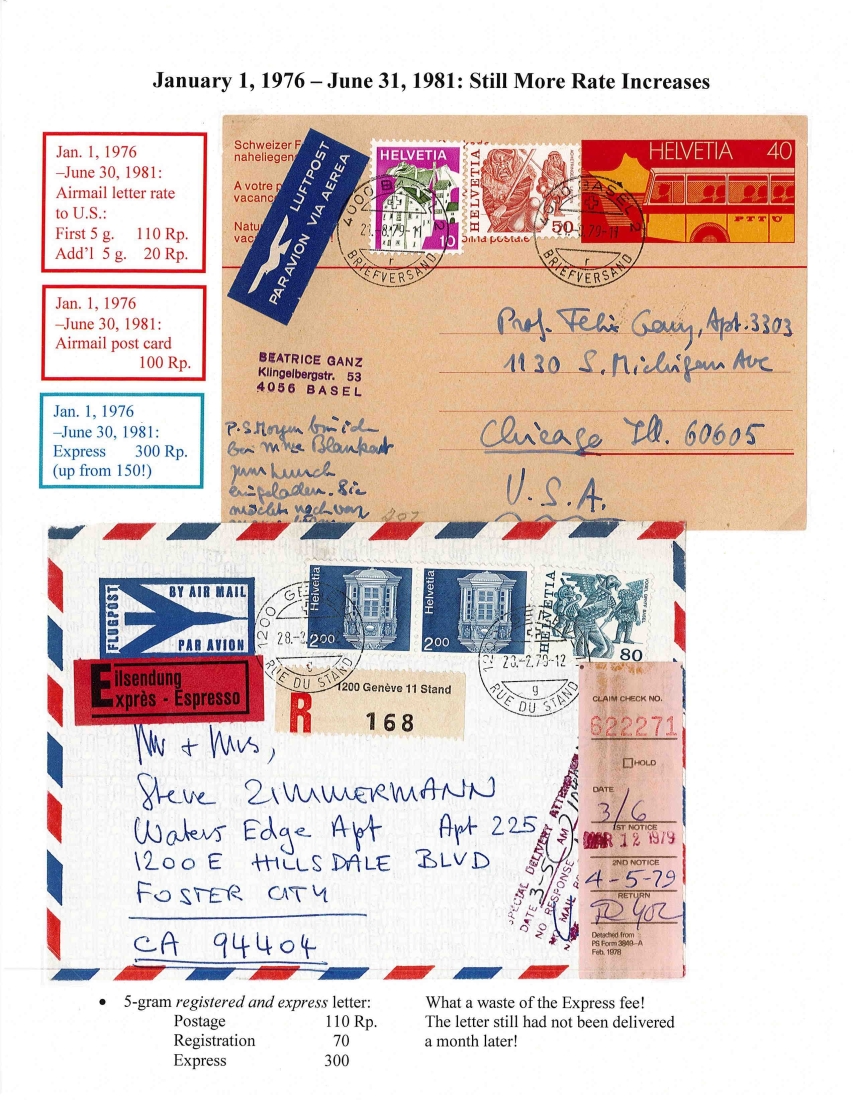 January 1, 1976 – June 31, 1981: Still More Rate Increases
Jan. 1, 1976
–June 30, 1981:
Airmail letter rate
to U.S.:
First 5 g. 110 Rp.
Add'l 5 g. 20 Rp.
Jan. 1, 1976
–June 30, 1981:
Airmail post card
100 Rp.
Jan. 1, 1976
–June 30, 1981:
Express 300 Rp.
(up from 150!)
Schweizer F
naheliegen
A votre p
vacanc
Natu
vac
LUFTPOST
PAR AVION VIA AEREA
HELVETIA
10
HELVETIA
50
HELVETIA 40
PTT
4000 BASEL 2
21.-8.79-11
r
BRIEFVERSAND
4000 BASEL 2
21.-8.79-11
r
BRIEFVERSAND
BEATRICE GANZ
Klingelbergstr. 53
4056 BASEL
Prof. Felix Ganz, Apt. 3303
1130 S. Michigan Ave
Chicago Ill. 60605
U.S.A.
P.S. Morgen bin ich
bei Mme Blankart
zum Lunch
eingeladen. Sie
möchte noch vor
FLUGPOST
BY AIR MAIL
PAR AVION
Eilsendung
Exprès - Espresso
Helvetia
200
Helvetia
200
HELVETIA
80
1200 GE
28.-2.
RUE DU STAND
28.-2.79-12
g
RUE DU STAND
R
1200 Genève 11 Stand
168
Mr + Mrs,
Steve ZIMMERMANN
Waters Edge Apt Apt 225
1200 E HILLSDALE BLVD
FOSTER CITY
CA 94404
SPECIAL DELIVERY ATTEMPTED
DATE 3-5 AM
NO RESPONSE
MAIL
CLAIM CHECK NO.
622271
HOLD
DATE
3/6
1ST NOTICE
MAR 12 1979
2ND NOTICE
4-5-79
RETURN
Detached from
PS Form 3849-A
Feb. 1978
• 5-gram registered and express letter:
Postage 110 Rp.
Registration 70
Express 300
What a waste of the Express fee!
The letter still had not been delivered
a month later!